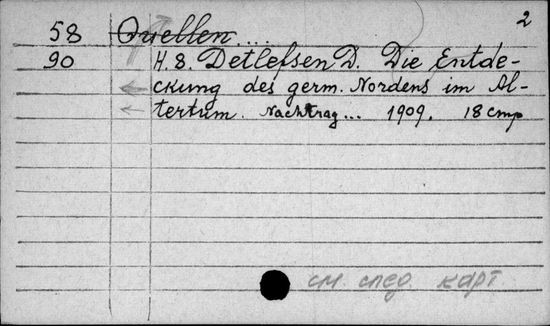 2
58 Quellen ...
90 H. 8. Detlefsen D. Die Entde-
ckung des germ. Nordens im Al-
tertum. Nachtrag... 1909. 18 стр
см. след. карт